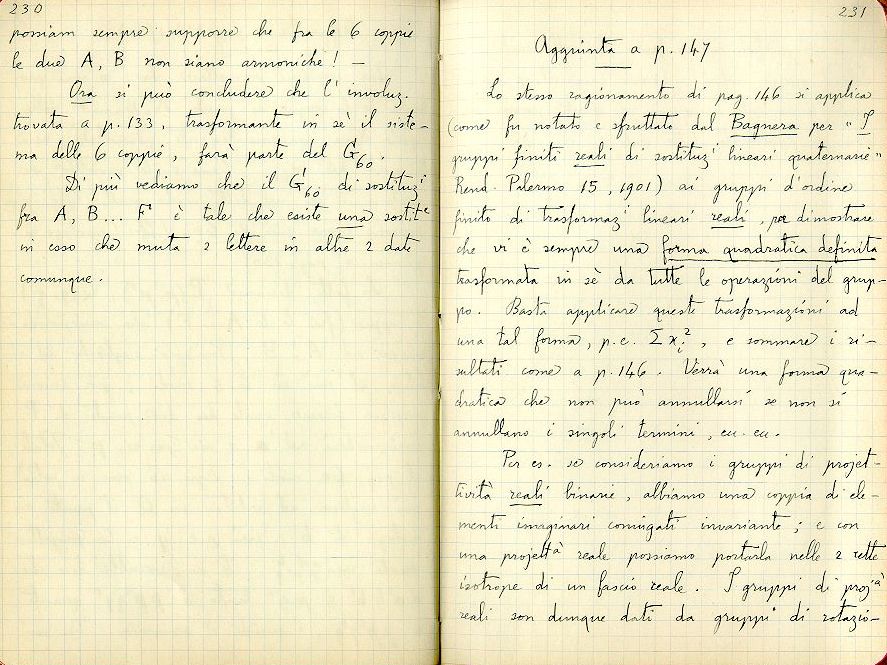 230
possiam sempre supporre che fra le 6 coppie
le due A, B non siano armoniche! —
Ora si può concludere che l'involuz.
trovata a p. 133, trasformante in sè il siste-
ma delle 6 coppie, farà parte del G'60.
Di più vediamo che il G'60 di sostituzi
fra A, B... F è tale che esiste una sostite
in esso che muta 2 lettere in altre 2 date
comunque.
231
Aggiunta a p. 147
Lo stesso ragionamento di pag. 146 si applica
(come fu notato e sfruttato dal Bagnera per "I
gruppi finiti reali di sostituzi lineari quaternarie"
Rend. Palermo 15, 1901) ai gruppi d'ordine
finito di trasformazi lineari reali, per dimostrare
che vi è sempre una forma quadratica definita
trasformata in sè da tutte le operazioni del grup-
po. Basta applicare queste trasformazioni ad
una tal forma, p.e. Σxi², e sommare i ri-
sultati come a p. 146. Verrà una forma qua-
dratica che non può annullarsi se non si
annullano i singoli termini, ecc. ecc.
Per es. se consideriamo i gruppi di projet-
tività reali binarie, abbiamo una coppia di ele-
menti imaginari coniugati invariante; e con
una projettà reale possiamo portarla nelle 2 rette
isotrope di un fascio reale. I gruppi di projà
reali son dunque dati da gruppi di rotazio-